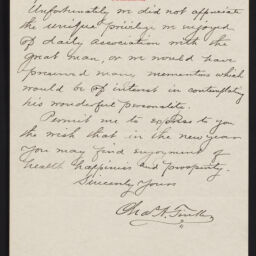 Unfortunately we did not appreciate
the unique privilege we enjoyed
of daily association with the
great man, or we would have
preserved many mementoes which
would be of interest in contemplating
his wonderful personality.
Permit me to express to you
the wish that in the new year
you may find enjoyment of
health happiness and prosperity.
Sincerely Yours
Chas.